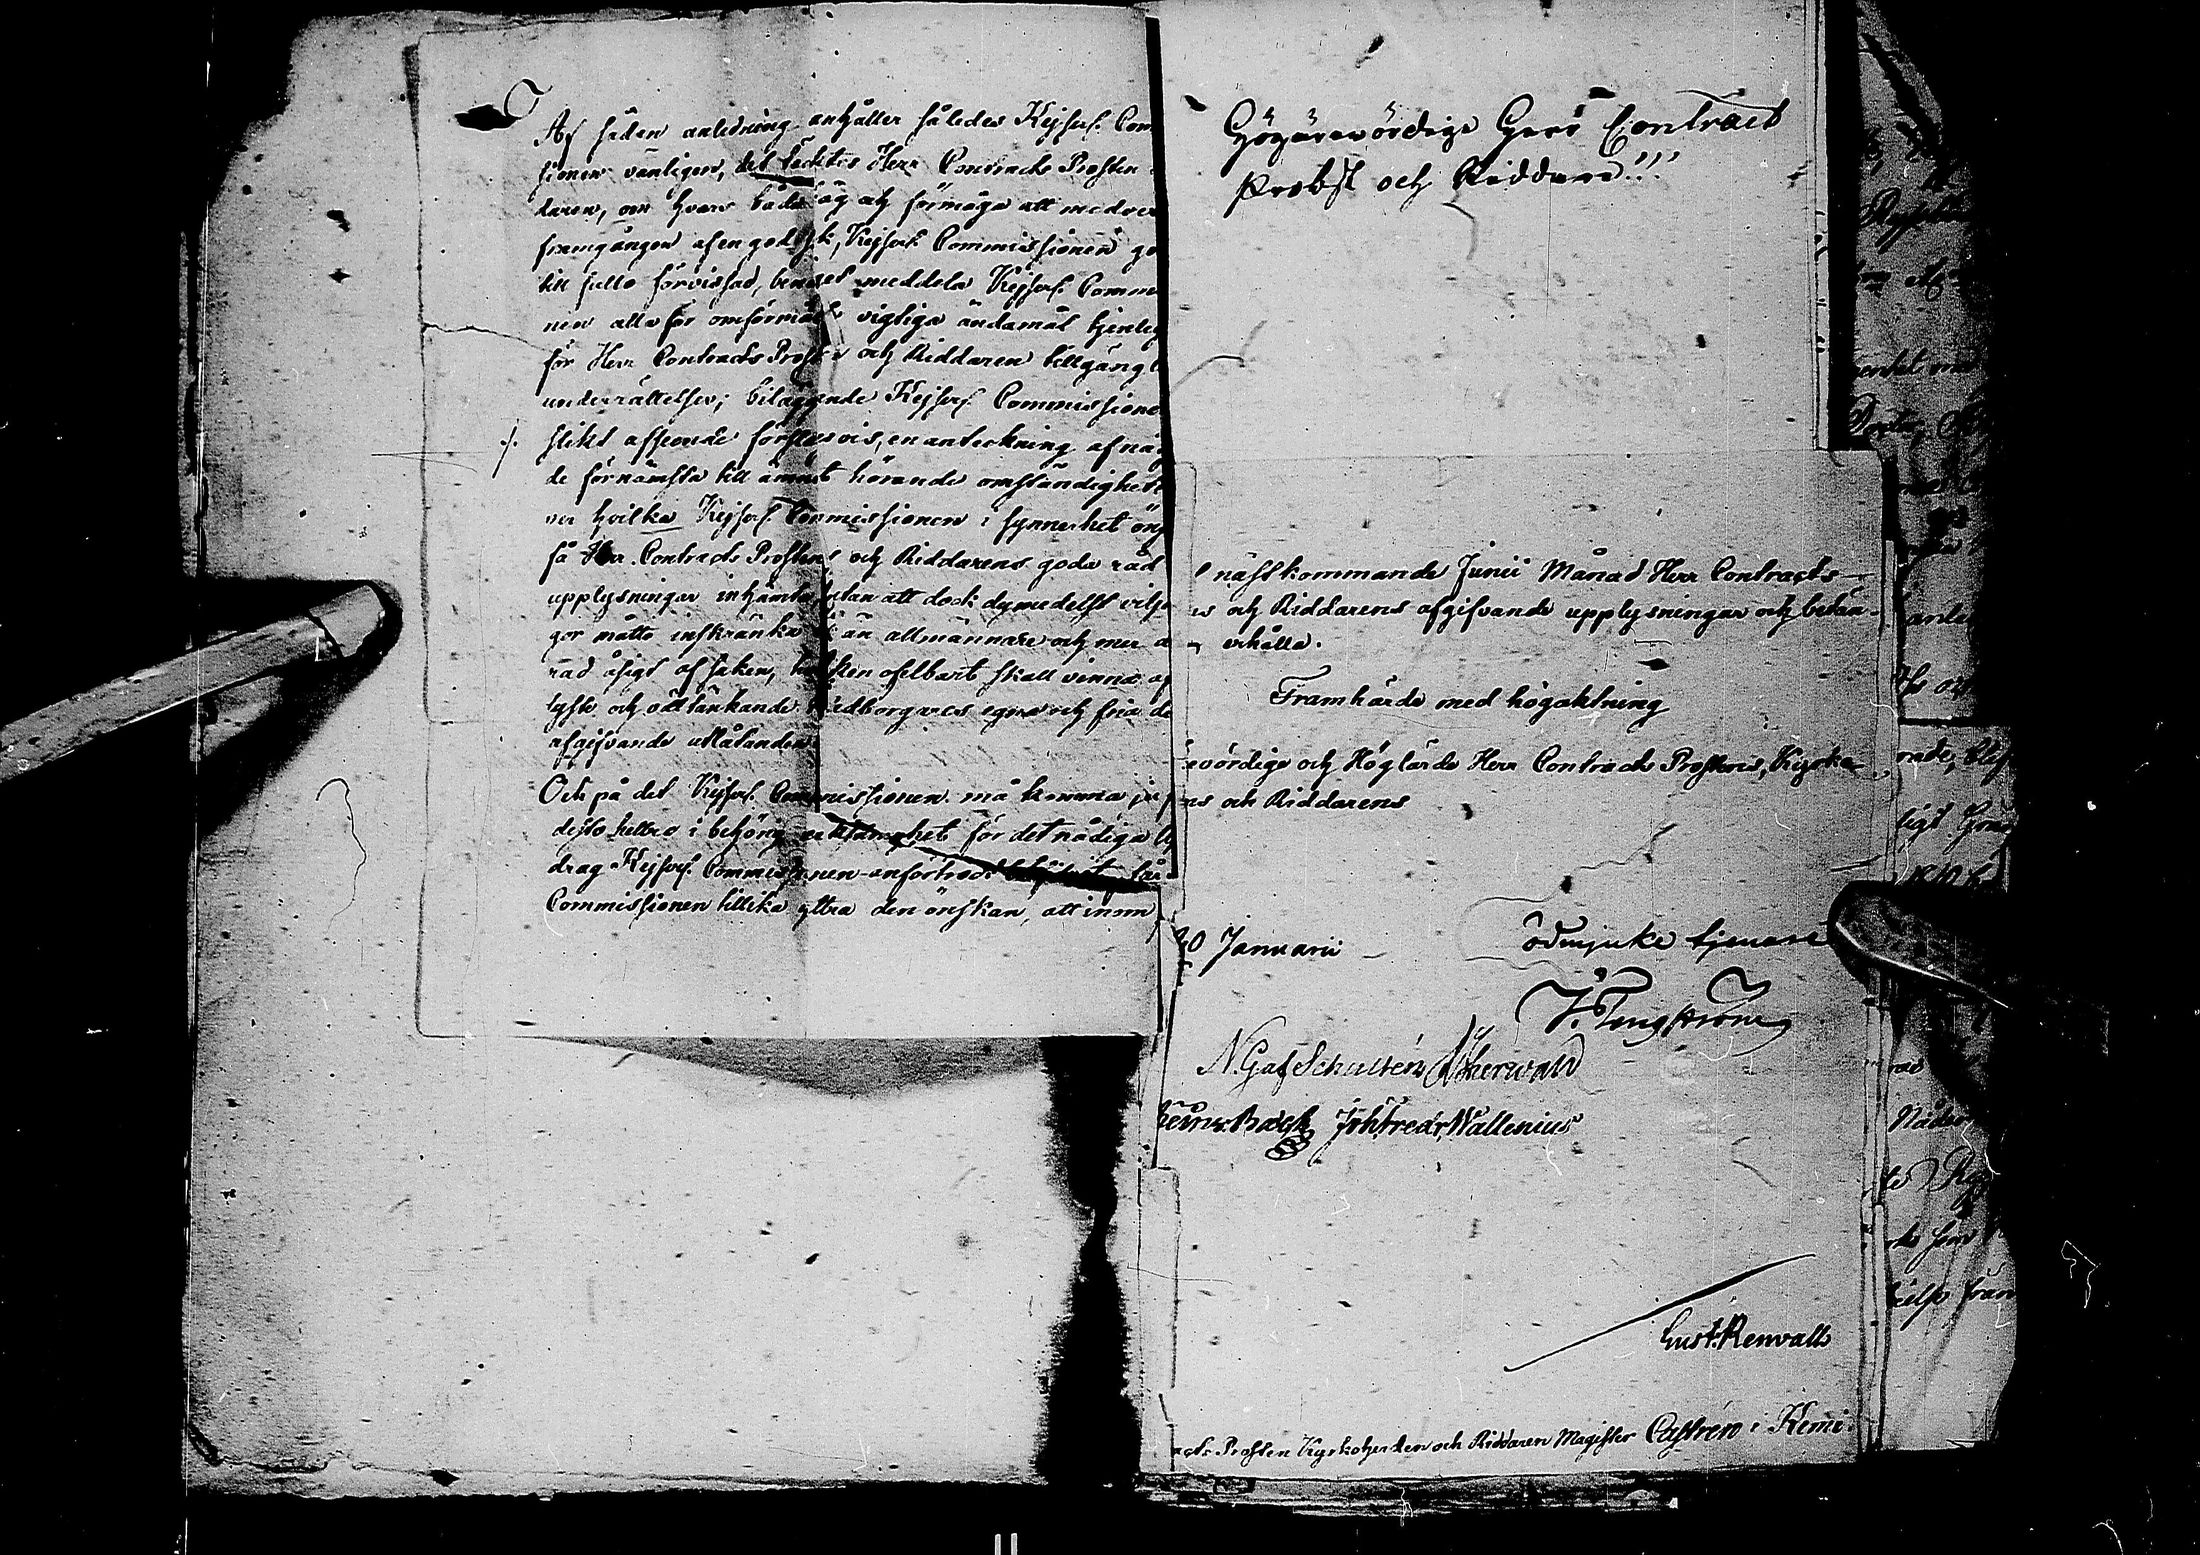 Af sådan anledning anhåller således Kejserl. Com
sionen vänligen, det täcktes Herr Contracts Prosten
daren, om hvars både håg och förmåga att medver
framgången af en god sak, Kejserl. Commissionen
till fullo förvissad, benäget meddela Kejserl. Commi
nen alla för omförmälte vigtiga ändamål tjenlig
för Herr Contracts Prosten och Riddaren tillgängl
underrättelser; biläggande Kejserl. Commissione
./. slikt afseende en anteckning af någ
de förnämsta till ämnet hörande omständighet
ver hvilka Kejserl. Commissionen i synnerhet öns
få Herr Contracts Prostens och Riddarens goda råd
upplysningar inhämta, utan att dock dymedelst vilja
gor måtto inskränka den allmännare och mer
rad åsigt af saken, hvilken ofelbart skall vinna af
lyste och rättänkande Medborgares egna och fria de
afgifvande utlåtanden.
Och på det Kejserl. Commissionen må komma
desto heldre i behörig verksamhet för det nådiga Up
drag Kejserl. Commissionen anförtrodt blifvit, får
Commissionen tillika yttra den önskan, att inom
Högärevördige Herr Contract
Probst och Riddare!!!
nästkommande Junii Månad Herr Contracts
s och Riddarens afgifvande upplysningar och betän-
erhålla.
Framhärde med högaktning
evördige och Höglärde Herr Contracts Prostens, Kyrko-
ns och Riddarens
20 Januarii
ödmjuke tjenare
J. Tengström
N. G. af Schultén
Joh. Fredr. Wallenius
Gust. Renvall
acts Prosten Kyrkoherden och Riddaren Magister Castrén i Kemi.